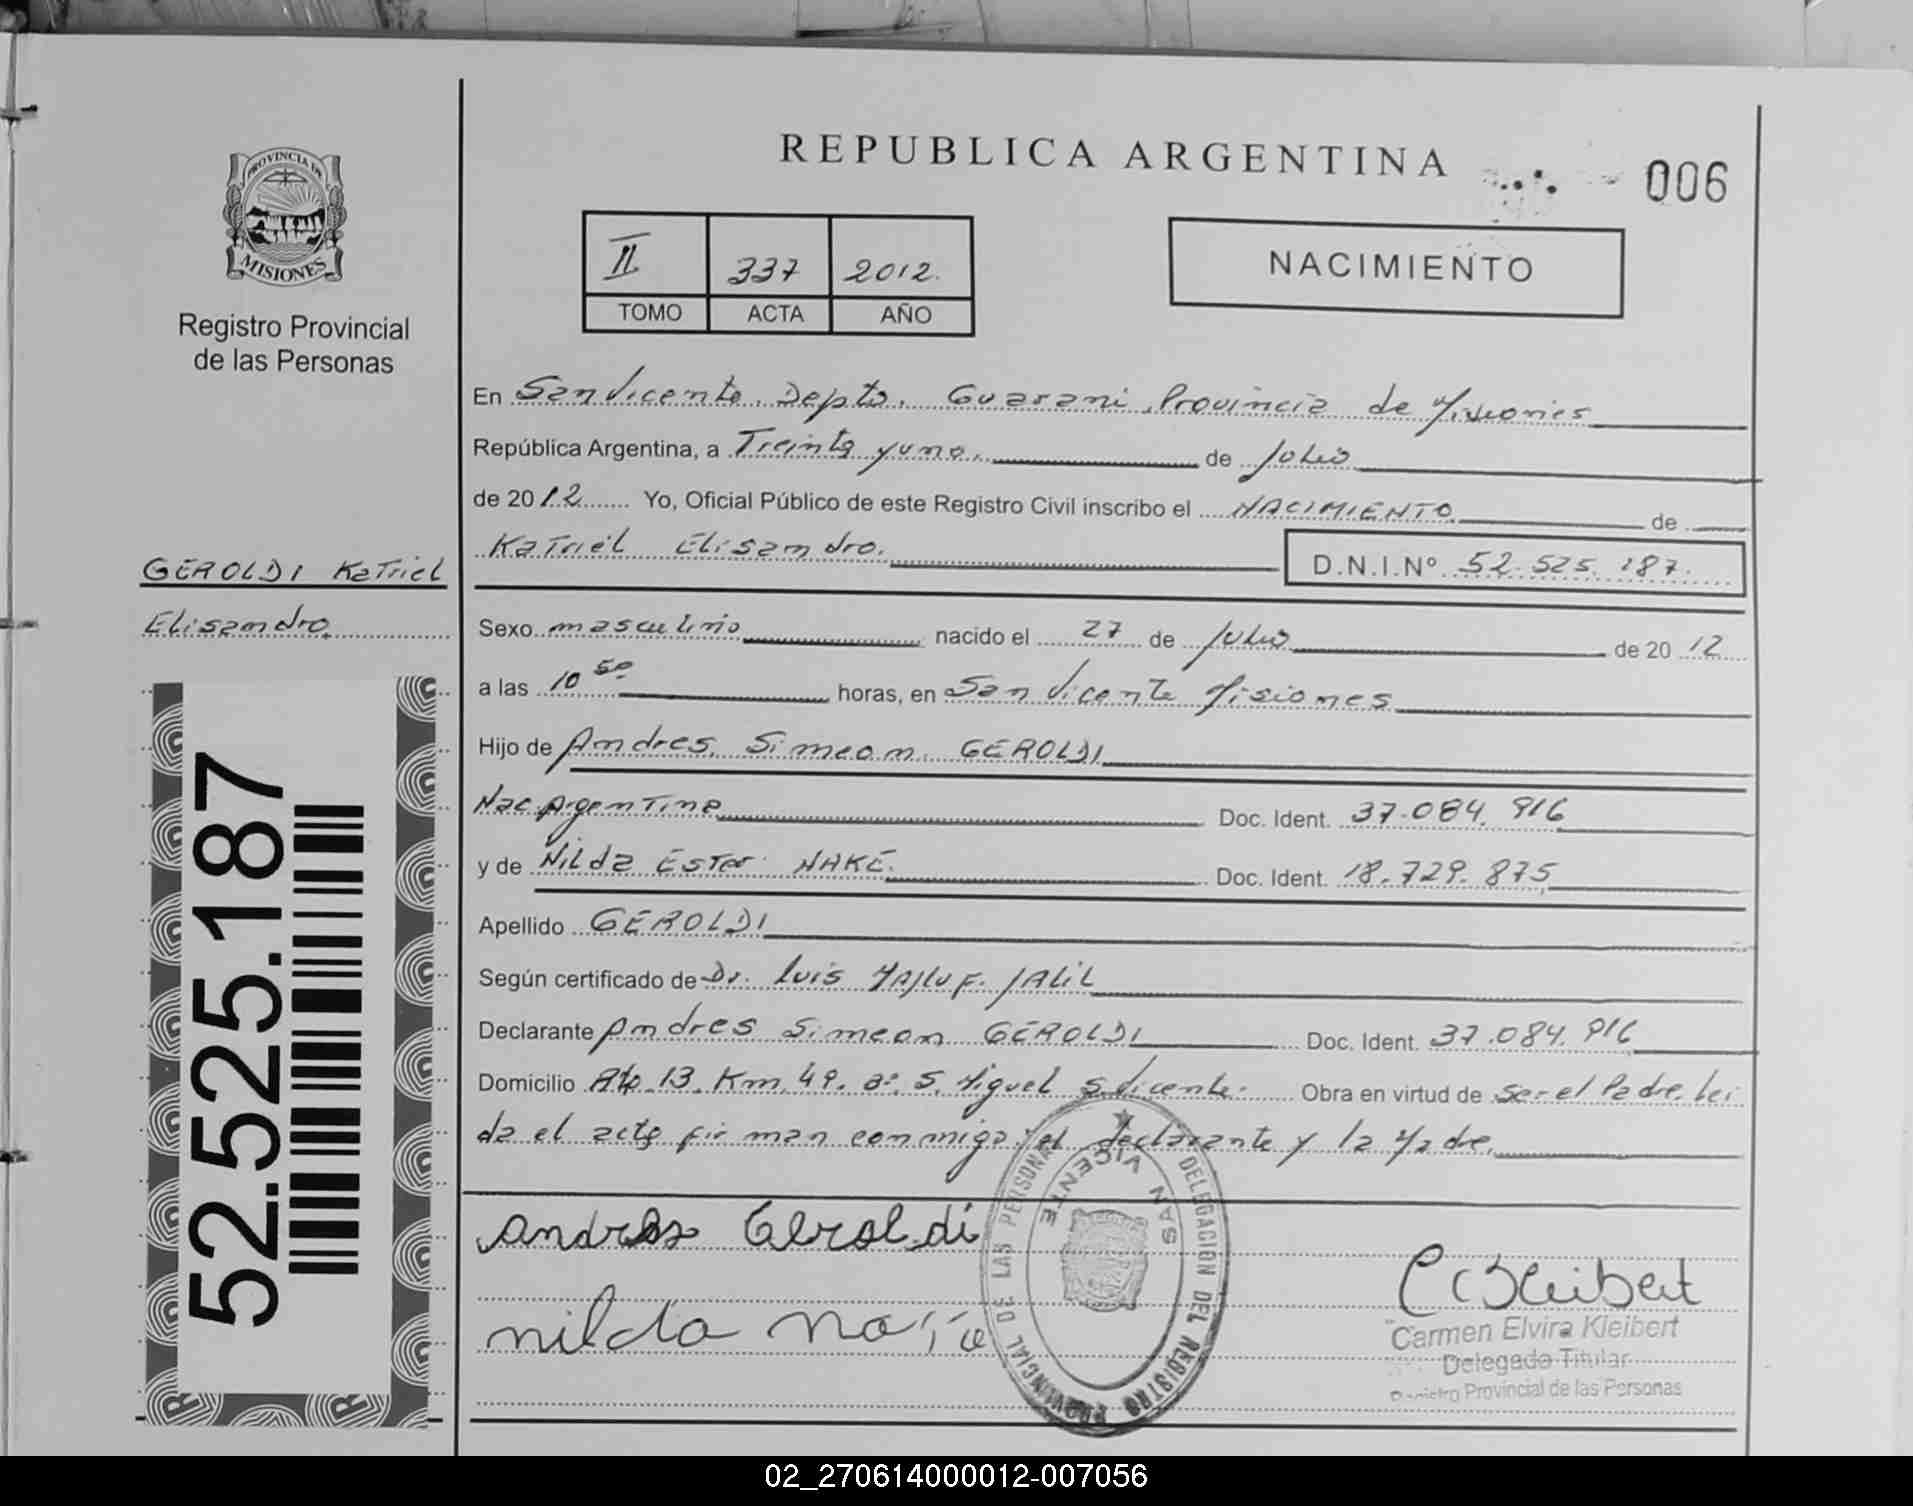 REPUBLICA ARGENTINA
006
PROVINCIA DE
MISIONES
Registro Provincial
de las Personas
II 337 2012.
TOMO ACTA AÑO
NACIMIENTO
En San Vicente. Depto. Guarani, Provincia de Misiones
República Argentina, a Treinta y uno. de Julio
de 2012 Yo, Oficial Público de este Registro Civil inscribo el NACIMIENTO de
Katriel Elisandro. D.N.I.Nº 52.525.187.
GEROLDI Katriel
Elisandro.
Sexo masculino nacido el 27 de Julio de 2012
a las 10 50 horas, en San Vicente Misiones
Hijo de Andres Simeon GEROLDI
Nac. Argentina Doc. Ident. 37.084.916
y de Nilda Ester NAKE. Doc. Ident. 18.729.875
Apellido GEROLDI
Según certificado de Dr. Luis JALIL
Declarante Andres Simeon GEROLDI Doc. Ident. 37.084.916
Domicilio Rta 13. Km. 49. S. Miguel S. Vicente. Obra en virtud de ser el Padre. Lei
da el acta firman conmigo: el declarante y la Madre.
52.525.187
Andres Geroldi
nilda
DELEGACION DEL REGISTRO PROVINCIAL DE LAS PERSONAS
SAN VICENTE
Carmen Elvira Kleibert
Delegado Titular
Registro Provincial de las Personas
02_270614000012-007056